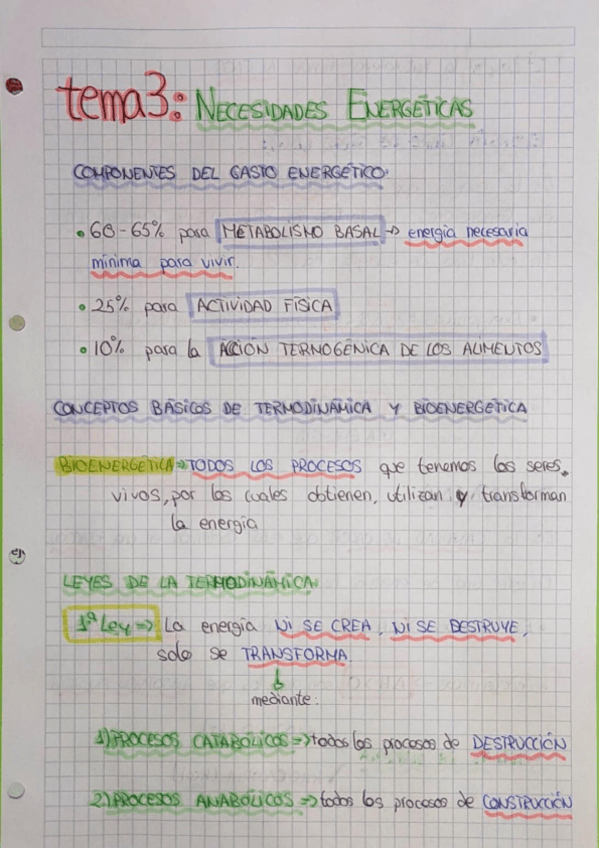 tema3: NECESIDADES ENERGÉTICAS
COMPONENTES DEL GASTO ENERGÉTICO:
• 60-65% para METABOLISMO BASAL → energía necesaria
mínima para vivir.
• 25% para ACTIVIDAD FÍSICA
• 10% para la ACCIÓN TERMOGÉNICA DE LOS ALIMENTOS
CONCEPTOS BÁSICOS DE TERMODINÁMICA Y BIOENERGÉTICA
BIOENERGÉTICA ⇒ TODOS LOS PROCESOS que tenemos los seres
vivos, por los cuales obtienen, utilizan y transforman
la energía
LEYES DE LA TERMODINÁMICA:
1ª Ley ⇒ La energía NI SE CREA, NI SE DESTRUYE,
solo se TRANSFORMA
↓
mediante:
1) PROCESOS CATABÓLICOS ⇒ todos los procesos de DESTRUCCIÓN
2) PROCESOS ANABÓLICOS ⇒ todos los procesos de CONSTRUCCIÓN